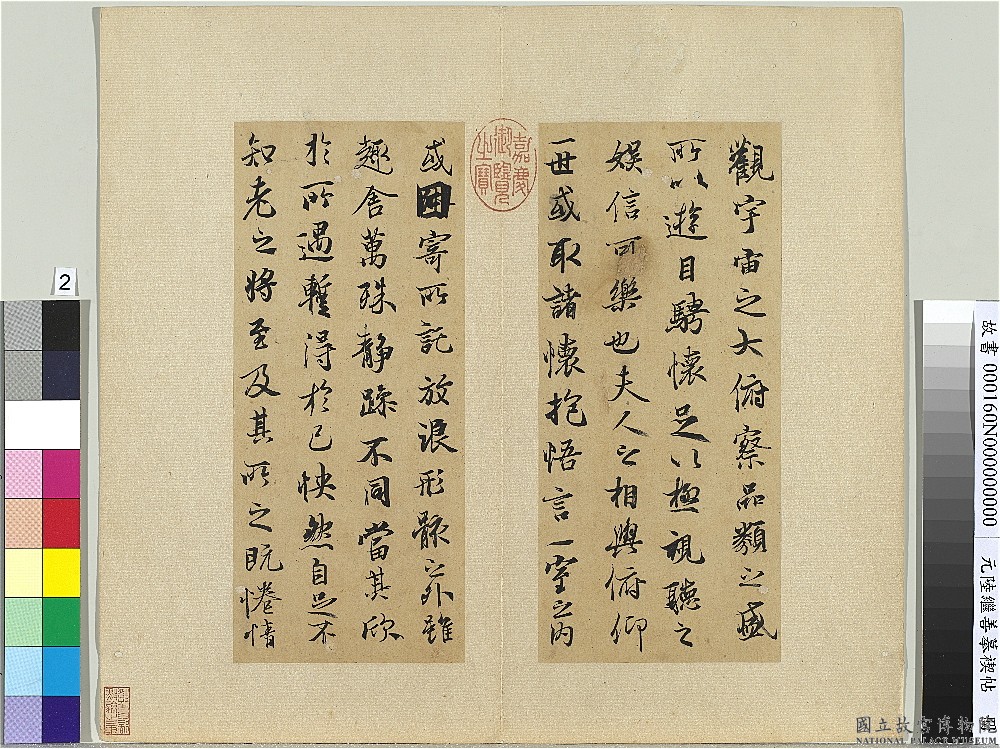 觀宇宙之大俯察品類之盛
所以遊目騁懷足以極視聽之
娛信可樂也夫人之相與俯仰
一世或取諸懷抱悟言一室之內
或因寄所託放浪形骸之外雖
趣舍萬殊静躁不同當其欣
於所遇暫得於己怏然自足不
知老之將至及其所之既惓情
嘉慶
御覽
之寶
2
故書 000160N000000000 元陸繼善摹禊帖
國立故宮博物院
NATIONAL PALACE MUSEUM